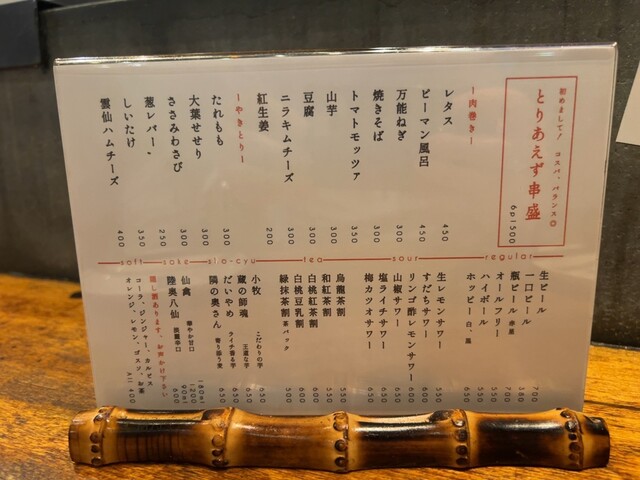 初めまして! コスパ、バランス◎
とりあえず串盛
6p1500
ー肉巻きー
レタス 450
ピーマン風呂 450
万能ねぎ 300
焼きそば 300
トマトモッツァ 350
山芋 300
豆腐 300
ニラキムチーズ
紅生姜 200
ーやきとりー
たれもも 300
大葉せせり 300
ささみわさび 250
葱レバー、 350
しいたけ
雲仙ハムチーズ 400
regular
生ビール 700
一口ビール 380
瓶ビール 赤星
オールフリー
ハイボール 550
ホッピー 白、黒 550
sour
生レモンサワー 550
すだちサワー
リンゴ酢レモンサワー 600
山椒サワー
塩ライチサワー 650
梅カツオサワー 650
tea
烏龍茶割 550
和紅茶割
白桃紅茶割
白桃豆乳割
緑抹茶割 茶パック 500
sho-cyu
小牧 こだわりの芋
蔵の師魂 王道な芋
だいやめ ライチ香る芋 650
隣の奥さん 寄り添う麦 650
sake
仙禽 華やか甘口
陸奥八仙 淡麗辛口
隠し酒あります、お声かけ下さい
soft
コーラ、ジンジャー、カルピス
オレンジ、レモン、ゴスソ、お茶
All 400